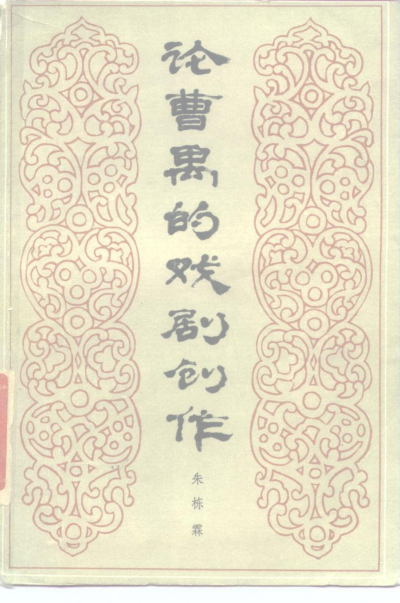 论曹禺的戏剧创作
朱栋霖